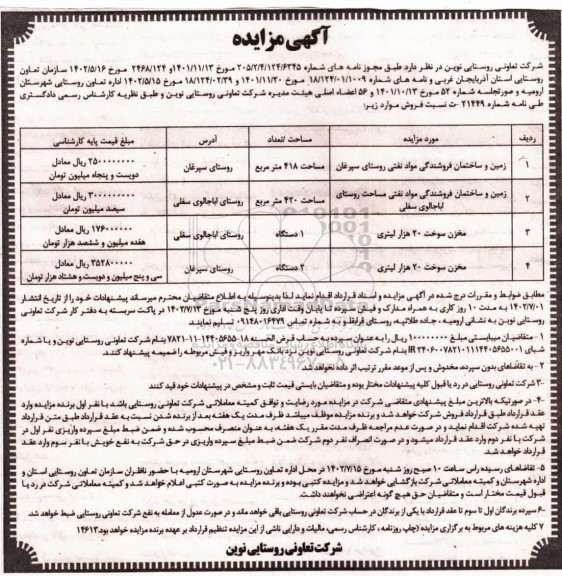 آگهی مزایده
شرکت تعاونی روستایی نوین در نظر دارد طبق مجوز نامه های شماره ۲۰۵/۲/۴/۱۲۴/۶۳۴۵ مورخ ۱۴۰۱/۱۱/۱۳و ۲۴۶۸/۱۲۴ مورخ ۱۴۰۲/۵/۱۶ سازمان تعاون
روستایی استان آذربایجان غربی و نامه های شماره ۱۸/۱۲۴/۰۱/۰۰۹ مورخ ۱۴۰۱/۱۱/۲۰ و ۱۸/۱۲۴/۰۲/۳۹ مورخ ۱۴۰۲/۵/۱۵ اداره تعاون روستایی شهرستان
ارومیه و صورتجلسه شماره ۵۲ مورخ ۱۴۰۱/۱۰/۱۳ و ۵۶ اعضاء اصلی هیئت مدیره شرکت تعاونی روستایی نوین و طبق نظریه کارشناس رسمی دادگستری
طی نامه شماره ۲۱۴۴۹ -ت نسبت فروش موارد زیر:
ردیف مورد مزایده مساحت /تعداد آدرس مبلغ قیمت پایه کارشناسی
۱ زمین و ساختمان فروشندگی مواد نفتی روستای سپرغان مساحت ۴۱۸ متر مربع روستای سپرغان ۲۵۰۰۰۰۰۰۰۰ ریال معادل
دویست و پنجاه میلیون تومان
۲ زمین و ساختمان فروشندگی مواد نفتی مساحت روستای اباجالوی سفلی مساحت ۴۲۰ متر مربع روستای اباجالوی سفلی ۳۰۰۰۰۰۰۰۰۰ ریال معادل
سیصد میلیون تومان
۳ مخزن سوخت ۲۰ هزار لیتری ۱ دستگاه روستای اباجالوی سفلی ۱۷۶۰۰۰۰۰۰ ریال معادل
هفده میلیون و ششصد هزار تومان
۴ مخزن سوخت ۲۰ هزار لیتری ۲ دستگاه روستای سپرغان ۳۵۲۸۰۰۰۰۰ ریال معادل
سی و پنج میلیون و دویست و هشتاد هزار تومان
مطابق ضوابط و مقررات درج شده در آگهی مزایده و اسناد قرارداد اقدام نماید لذا بدینوسیله به اطلاع متقاضیان محترم میرساند پیشنهادات خود را از تاریخ انتشار
۱۴۰۲/۷/۰۱ به مدت ۱۰ روز کاری به همراه مدارک و فیش سپرده تا پایان وقت اداری روز پنج شنبه مورخ ۱۴۰۲/۷/۱۳ در پاکت سربسته به دفتر کار شرکت تعاونی
روستایی نوین به نشانی ارومیه ، جاده طلاتپه، روستای قرابقلو و به شماره تماس ۰۹۱۴۸۰۱۶۴۷۹ تسلیم نمایند.
۱- متقاضیان میبایستی مبلغ ۱۰۰۰۰۰۰۰۰ ریال را به عنوان سپرده به حساب قرض الحسنه ۱۸-۱۴۴۰۵۶۵۵-۱۱-۷۸۲۱ بنام شرکت تعاونی روستایی نوین و یا شماره
شبای IR نزد بانک مهر واریز و فیش مربوطه را ضمیمه پیشنهاد کنند.
۲- به تقاضاهای بدون سپرده، مخدوش و پس از موعد مقرر ترتیب اثر داده نخواهد شد.
۳- شرکت تعاونی روستایی در رد یا قبول کلیه پیشنهادات مختار بوده و متقاضیان بایستی قیمت ثابت و مشخص در پیشنهادات خود قید کنند
۴- در صورتیکه بالاترین مبلغ پیشنهادی متقاضی شرکت در مزایده مورد رضایت و توافق کمیته معاملاتی شرکت تعاونی روستایی باشد با نفر اول برنده مزایده وارد
عقد قرارداد طبق قرارداد فروش شرکت خواهد شد و برنده مزایده موظف میباشد ظرف مدت یک هفته بعد از برنده شدن نسبت به عقد قرارداد طبق متن قرارداد
تهیه شده شرکت اقدام نماید و در صورت عدم مراجعه ظرف مدت مقرر یک هفته، به عنوان منصرف محسوب شده و ضمن ضبط مبلغ سپرده واریزی نفر اول در
شرکت با نفر دوم وارد عقد قرارداد میشود و در صورت انصراف نفر دوم شرکت ضمن ضبط مبلغ سپرده واریزی در حق شرکت به نفع خویش با نفر سوم وارد عقد
قرارداد خواهد شد.
۵- تقاضاهای رسیده راس ساعت ۱۰ صبح روز شنبه مورخ ۱۴۰۲/۷/۱۵ در محل اداره تعاون روستایی شهرستان ارومیه با حضور ناظران سازمان تعاون روستایی استان و
اداره شهرستان و کمیته معاملاتی شرکت بازگشایی خواهد شد و مزایده کتبی بوده و برنده مزایده به صورت کتبی اعلام خواهد شد و کمیته معاملاتی شرکت در رد یا
قبول قیمت مختار است و متقاضیان حق هیچ گونه اعتراضی نخواهند داشت.
۶- سپرده برندگان اول تا سوم تا عقد قرارداد با یکی از برندگان در حساب شرکت تعاونی روستایی باقی خواهد ماند و در صورت عدول از معامله به نفع شرکت تعاونی روستایی ضبط خواهد شد.
۷ کلیه هزینه های مربوط به برگزاری مزایده (چاپ روزنامه ، کارشناس رسمی، مالیات و دارایی ناشی از این مزایده تنظیم قرارداد بر عهده برنده مزایده خواهد بود.۱۴۶۱۳
شرکت تعاونی روستایی نوین